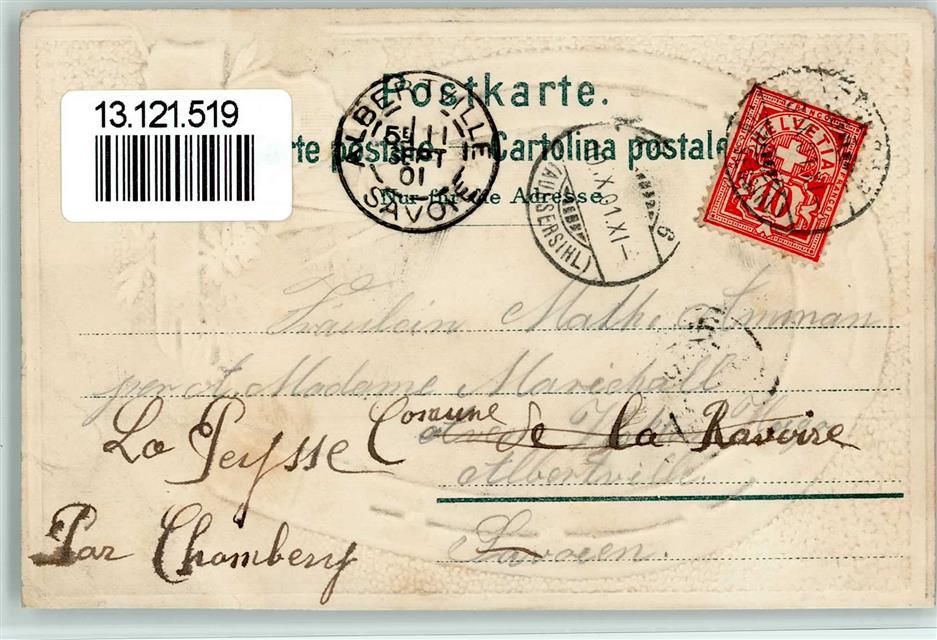 Postkarte.
13.121.519
rte postale — Cartolina postale
Nur für die Adresse.
ALBERTVILLE
5E 11
SEPT
01
SAVOIE
X.01.XI-
6
(AUSSERSIHL)
FRANCO
HELVETIA
10
Fräulein Mathe Amman
per A. Madame Marichall
Comune
La Peysse de la Ravoire
Albertville
Par Chambery
Savoien.